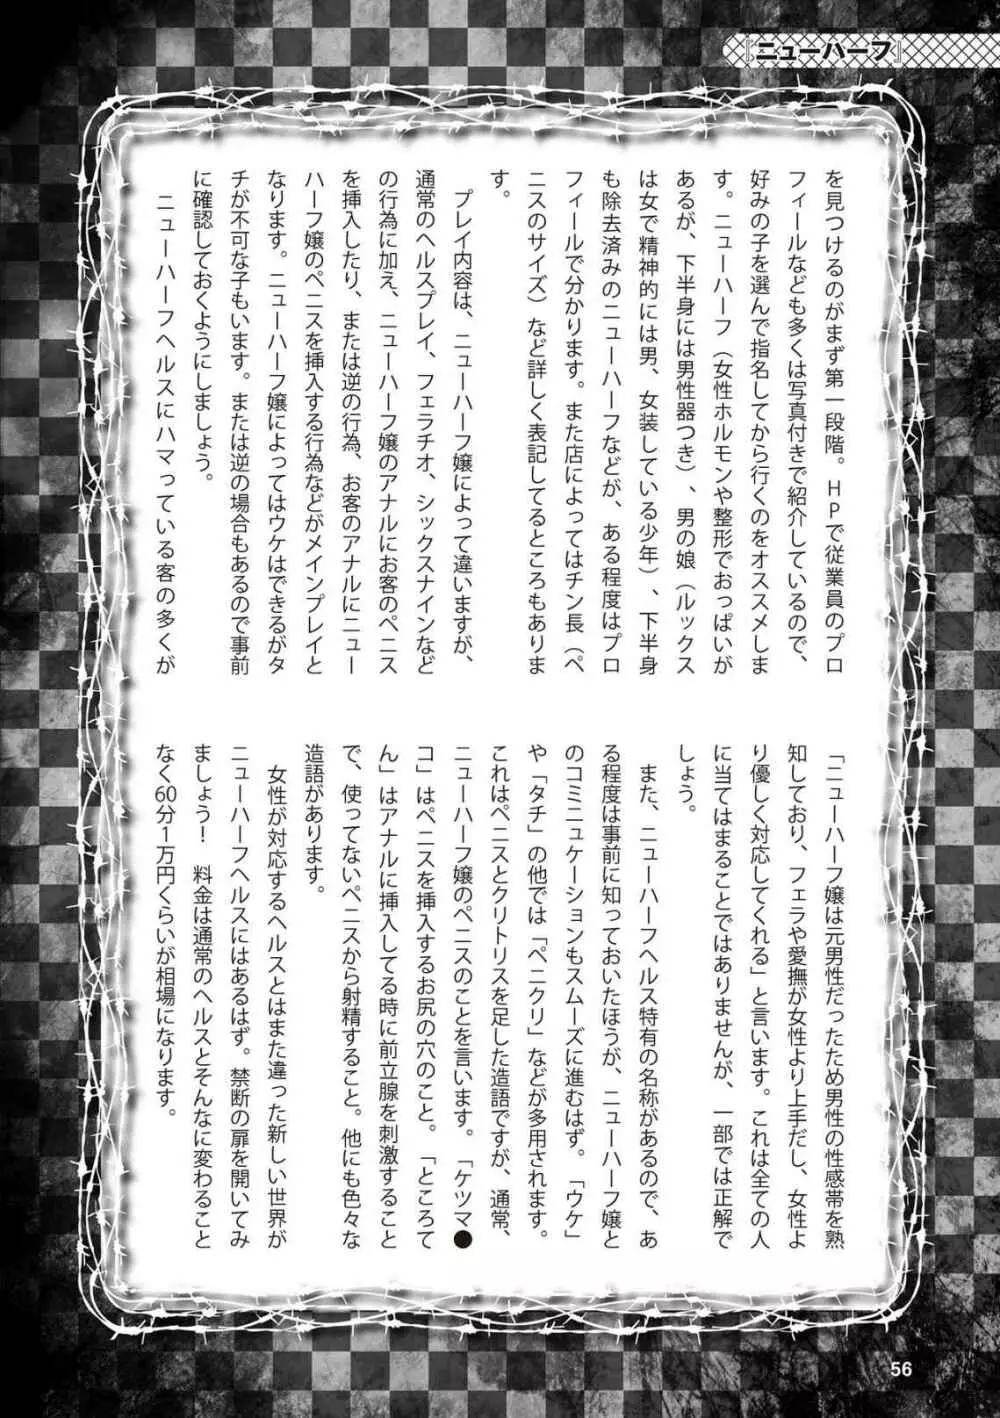 『ニューハーフ』
を見つけるのがまず第一段階。HPで従業員のプロ
フィールなども多くは写真付きで紹介しているので、
好みの子を選んで指名してから行くのをオススメしま
す。ニューハーフ（女性ホルモンや整形でおっぱいが
あるが、下半身には男性器つき）、男の娘（ルックス
は女で精神的には男、女装している少年）、下半身
も除去済みのニューハーフなどが、ある程度はプロ
フィールで分かります。また店によってはチン長（ペ
ニスのサイズ）など詳しく表記してるところもありま
す。
　プレイ内容は、ニューハーフ嬢によって違いますが、
通常のヘルスプレイ、フェラチオ、シックスナインなど
の行為に加え、ニューハーフ嬢のアナルにお客のペニス
を挿入したり、または逆の行為、お客のアナルにニュー
ハーフ嬢のペニスを挿入する行為などがメインプレイと
なります。ニューハーフ嬢によってはウケはできるがタ
チが不可な子もいます。または逆の場合もあるので事前
に確認しておくようにしましょう。
　ニューハーフヘルスにハマっている客の多くが
「ニューハーフ嬢は元男性だったため男性の性感帯を熟
知しており、フェラや愛撫が女性より上手だし、女性よ
り優しく対応してくれる」と言います。これは全ての人
に当てはまることではありませんが、一部では正解で
しょう。
　また、ニューハーフヘルス特有の名称があるので、あ
る程度は事前に知っておいたほうが、ニューハーフ嬢と
のコミニュケーションもスムーズに進むはず。「ウケ」
や「タチ」の他では「ペニクリ」などが多用されます。
これはペニスとクリトリスを足した造語ですが、通常、
ニューハーフ嬢のペニスのことを言います。「ケツマ●
コ」はペニスを挿入するお尻の穴のこと。「ところて
ん」はアナルに挿入してる時に前立腺を刺激すること
で、使ってないペニスから射精すること。他にも色々な
造語があります。
　女性が対応するヘルスとはまた違った新しい世界が
ニューハーフヘルスにはあるはず。禁断の扉を開いてみ
ましょう！　料金は通常のヘルスとそんなに変わること
なく60分1万円くらいが相場になります。
56